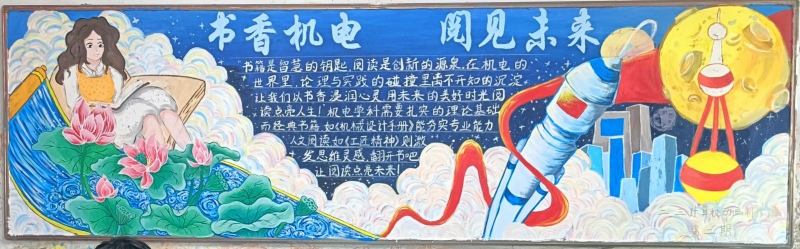 书香机电 阅见未来
书籍是智慧的钥匙,阅读是创新的源泉,在机电的
世界里,论理与实践的碰撞里离不开知的沉淀,
让我们以书香浸润心灵,用未来的美好时光阅
读点亮人生!机电学科需要扎实的理论基础
而经典书籍如《机械设计手册》能夯实专业能力
人文阅读如《工匠精神》则激
发思维灵感,翻开书吧
让阅读点亮未来!